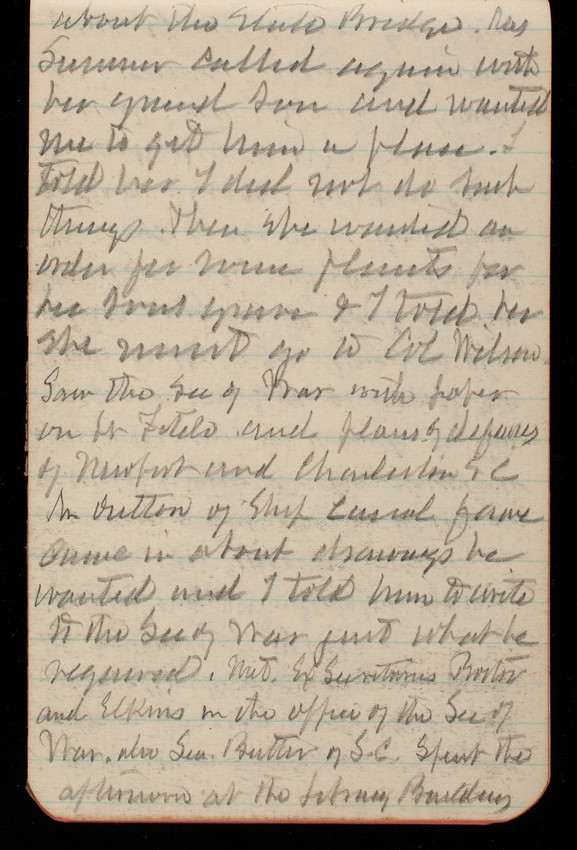 about the State Bridge. Mrs
Sumner called again with
her grand son and wanted
me to get him a place. I
told her I did not do such
things. Then she wanted an
order for some plants for
her sons grave & I told her
she must go to Col Wilson.
Saw the Sec of War with paper
on and plans of defenses
of Newport and Charleston S.C
Mr Dutton of Ship Canal fame
came in about drawings he
wanted and I told him to write
to the Sec of War just what he
required. Met. Ex Secretaries Proctor
and Elkins in the office of the Sec of
War. also Sen. Butler of S.C. Spent the
afternoon at the Library Building